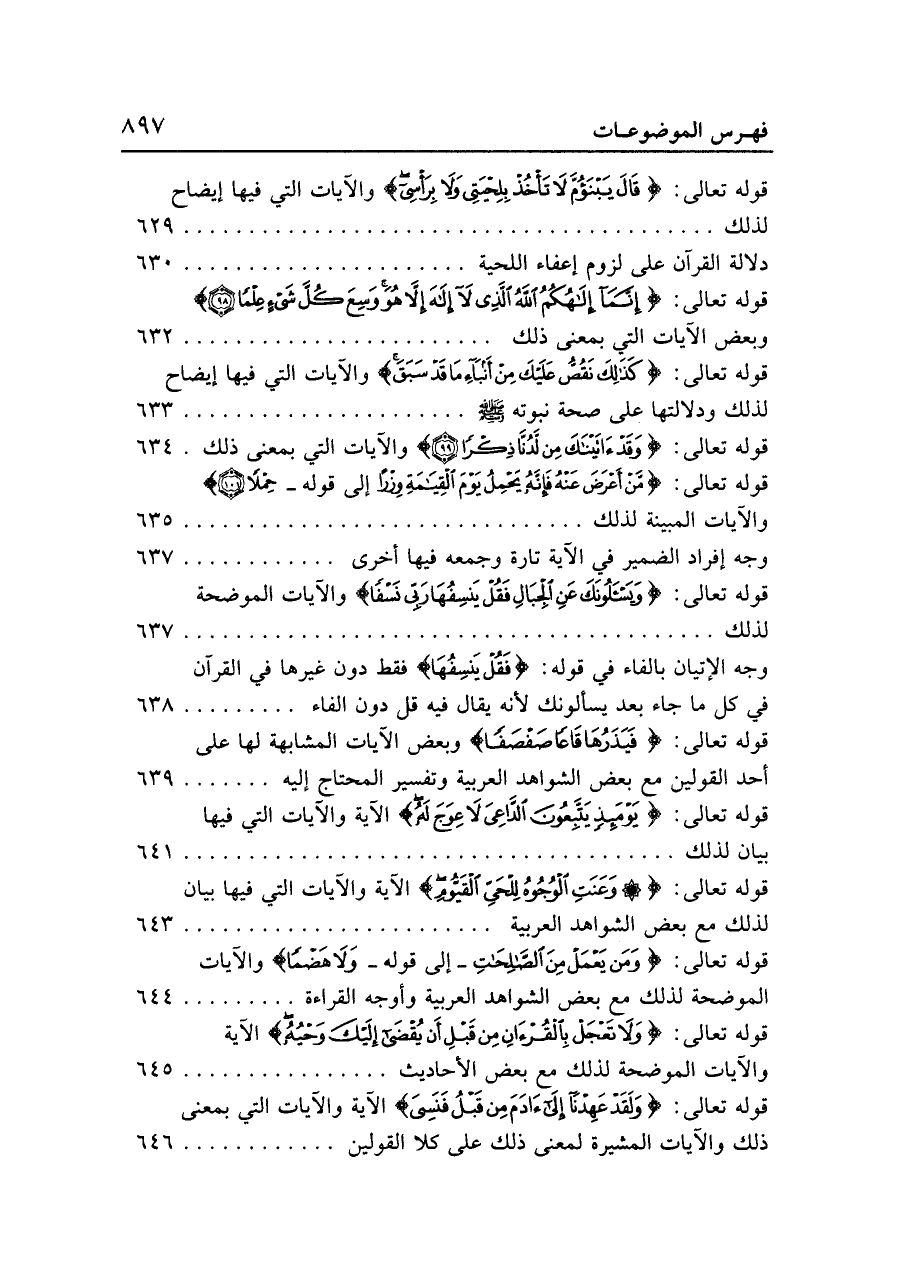 فهرس الموضوعات ٨٩٧
قوله تعالى: ﴿ قَالَ يَبْنَؤُمَّ لَا تَأْخُذْ بِلِحْيَتِى وَلَا بِرَأْسِىٓ ﴾ والآيات التي فيها إيضاح
لذلك . . . . . . . . . . . . . . . . . . . . ٦٢٩
دلالة القرآن على لزوم إعفاء اللحية . . . . . . . . . . . . ٦٣٠
قوله تعالى: ﴿ إِنَّمَآ إِلَٰهُكُمُ ٱللَّهُ ٱلَّذِى لَآ إِلَٰهَ إِلَّا هُوَ ۚ وَسِعَ كُلَّ شَىْءٍ عِلْمًا ٩٨ ﴾
وبعض الآيات التي بمعنى ذلك . . . . . . . . . . . . ٦٣٢
قوله تعالى: ﴿ كَذَٰلِكَ نَقُصُّ عَلَيْكَ مِنْ أَنۢبَآءِ مَا قَدْ سَبَقَ ۚ ﴾ والآيات التي فيها إيضاح
لذلك ودلالتها على صحة نبوته ﷺ . . . . . . . . . . . . ٦٣٣
قوله تعالى: ﴿ وَقَدْ ءَاتَيْنَٰكَ مِن لَّدُنَّا ذِكْرًا ٩٩ ﴾ والآيات التي بمعنى ذلك . ٦٣٤
قوله تعالى: ﴿ مَّنْ أَعْرَضَ عَنْهُ فَإِنَّهُۥ يَحْمِلُ يَوْمَ ٱلْقِيَٰمَةِ وِزْرًا إلى قوله ـ حِمْلًا ١٠١ ﴾
والآيات المبينة لذلك . . . . . . . . . . . . . . . . ٦٣٥
وجه إفراد الضمير في الآية تارة وجمعه فيها أخرى . . . . . . . . ٦٣٧
قوله تعالى: ﴿ وَيَسْـَٔلُونَكَ عَنِ ٱلْجِبَالِ فَقُلْ يَنسِفُهَا رَبِّى نَسْفًا ﴾ والآيات الموضحة
لذلك . . . . . . . . . . . . . . . . . . . . ٦٣٧
وجه الإتيان بالفاء في قوله: ﴿ فَقُلْ يَنسِفُهَا ﴾ فقط دون غيرها في القرآن
في كل ما جاء بعد يسألونك لأنه يقال فيه قل دون الفاء . . . . . . . . . ٦٣٨
قوله تعالى: ﴿ فَيَذَرُهَا قَاعًا صَفْصَفًا ﴾ وبعض الآيات المشابهة لها على
أحد القولين مع بعض الشواهد العربية وتفسير المحتاج إليه . . . . . . . ٦٣٩
قوله تعالى: ﴿ يَوْمَئِذٍ يَتَّبِعُونَ ٱلدَّاعِىَ لَا عِوَجَ لَهُۥ ﴾ الآية والآيات التي فيها
بيان لذلك . . . . . . . . . . . . . . . . . . . . ٦٤١
قوله تعالى: ﴿ ۞ وَعَنَتِ ٱلْوُجُوهُ لِلْحَىِّ ٱلْقَيُّومِ ۖ ﴾ الآية والآيات التي فيها بيان
لذلك مع بعض الشواهد العربية . . . . . . . . . . . . ٦٤٣
قوله تعالى: ﴿ وَمَن يَعْمَلْ مِنَ ٱلصَّٰلِحَٰتِ ـ إلى قوله ـ وَلَا هَضْمًا ﴾ والآيات
الموضحة لذلك مع بعض الشواهد العربية وأوجه القراءة . . . . . . . . . ٦٤٤
قوله تعالى: ﴿ وَلَا تَعْجَلْ بِٱلْقُرْءَانِ مِن قَبْلِ أَن يُقْضَىٰٓ إِلَيْكَ وَحْيُهُۥ ۖ ﴾ الآية
والآيات الموضحة لذلك مع بعض الأحاديث . . . . . . . . . . . . ٦٤٥
قوله تعالى: ﴿ وَلَقَدْ عَهِدْنَآ إِلَىٰٓ ءَادَمَ مِن قَبْلُ فَنَسِىَ ﴾ الآية والآيات التي بمعنى
ذلك والآيات المشيرة لمعنى ذلك على كلا القولين . . . . . . . . . . . . ٦٤٦